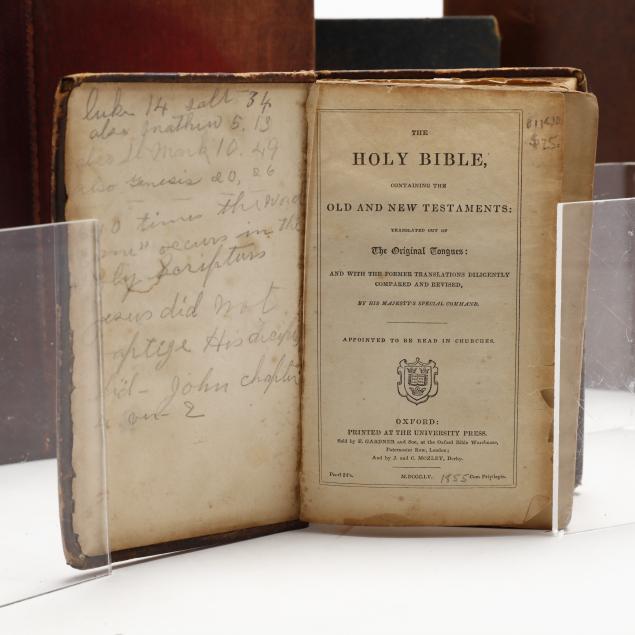 luke 14 salt 34
also Mathiw 5. 13
also St Mark 10. 29
also Genesis 20, 26
times the Word
occurs in the
Scripturs
jesus did not
His
John chapter
2
THE
HOLY BIBLE,
CONTAINING THE
OLD AND NEW TESTAMENTS:
TRANSLATED OUT OF
The Original Tongues:
AND WITH THE FORMER TRANSLATIONS DILIGENTLY
COMPARED AND REVISED,
BY HIS MAJESTY'S SPECIAL COMMAND.
APPOINTED TO BE READ IN CHURCHES.
OXFORD:
PRINTED AT THE UNIVERSITY PRESS.
Sold by E. GARDNER and Son, at the Oxford Bible Warehouse,
Paternoster Row, London;
And by J. and C. MOZLEY, Derby.
Pearl 24º.
M.DCCC.LV. 1855 Cum Privilegio.
$25.